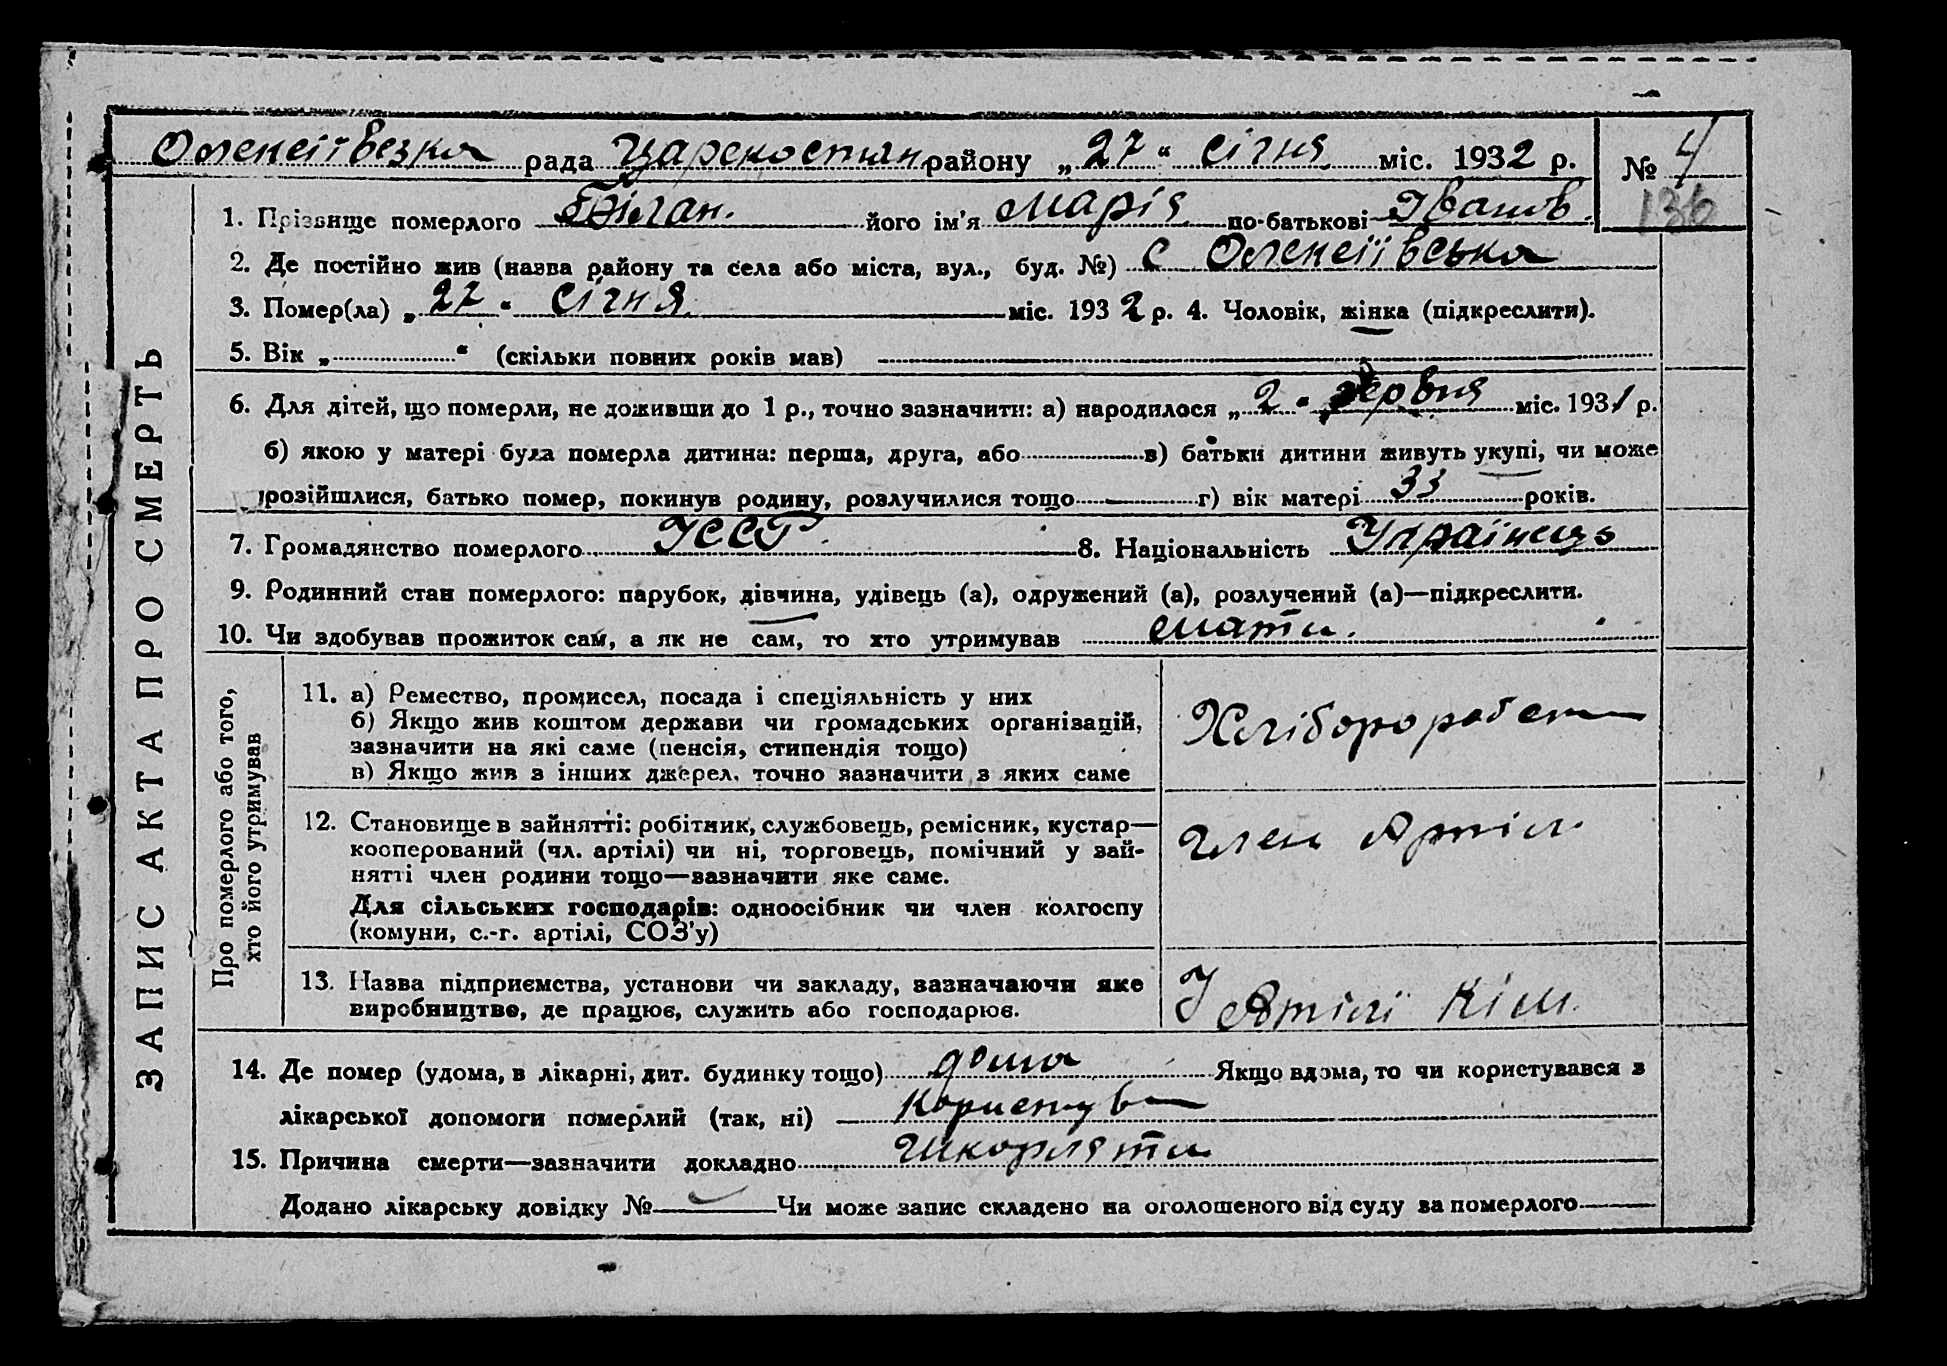 Олексіївська рада Царекостян району „27“ січня міс. 1932 р. № 4
136
ЗАПИС АКТА ПРО СМЕРТЬ
1. Прізвище померлого Білан. його ім’я Марія по-батькові Іванов.
2. Де постійно жив (назва району та села або міста, вул., буд. №) с Олексіївська
3. Помер(ла) „27“ січня міс. 1932 р. 4. Чоловік, жінка (підкреслити).
5. Вік „ “ (скільки повних років мав)
6. Для дітей, що померли, не доживши до 1 р., точно зазначити: а) народилося „2“ червня міс. 1931 р.
б) якою у матері була померла дитина: перша, друга, або в) батьки дитини живуть укупі, чи може
розійшлися, батько помер, покинув родину, розлучилися тощо г) вік матері 33 років.
7. Громадянство померлого УССР. 8. Національність Українець
9. Родинний стан померлого: парубок, дівчина, удівець (а), одружений (а), розлучений (а)—підкреслити.
10. Чи здобував прожиток сам, а як не сам, то хто утримував мати.
Про померлого або того,
хто його утримував
11. а) Ремество, промисел, посада і спеціяльність у них
б) Якщо жив коштом держави чи громадських організацій,
зазначити на які саме (пенсія, стипендія тощо)
в) Якщо жив з інших джерел, точно зазначити з яких саме
12. Становище в зайнятті: робітник, службовець, ремісник, кустар—
кооперований (чл. артілі) чи ні, торговець, помічний у зай-
нятті член родини тощо—зазначити яке саме.
Для сільських господарів: одноосібник чи член колгоспу
(комуни, с.-г. артілі, СОЗ’у)
член Артіл.
13. Назва підприємства, установи чи закладу, зазначаючи яке
виробництво, де працює, служить або господарює.
У Артілі
14. Де помер (удома, в лікарні, дит. будинку тощо) дома Якщо вдома, то чи користувався з
лікарської допомоги померлий (так, ні) користув
15. Причина смерти—зазначити докладно
Додано лікарську довідку № Чи може запис складено на оголошеного від суду за померлого